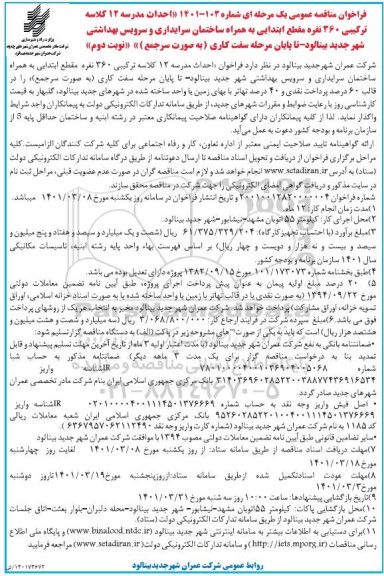 فراخوان مناقصه عمومی یک مرحله ای شماره ۱۰۳-۱۴۰۱ «احداث مدرسه ۱۲ کلاسه
ترکیبی ۳۶۰ نفره مقطع ابتدایی به همراه ساختمان سرایداری و سرویس بهداشتی
شهر جدید بینالود-تا پایان مرحله سفت کاری ( به صورت سرجمع )» «نوبت دوم»
شرکت عمران شهرجدید بینالود در نظر دارد فراخوان احداث مدرسه ۱۲ کلاسه ترکیبی ۳۶۰ نفره مقطع ابتدایی به همراه
ساختمان سرایداری و سرویس بهداشتی شهر جدید بینالود- تا پایان مرحله سفت کاری (به صورت سرجمع)» را در
قالب ۶۰ درصد پرداخت نقدی و ۴۰ درصد تهاتر با بهای زمین یا واحد ساخته شده در شهرهای جدید بینالود، گلبهار به قیمت
کارشناسی روز با رعایت ضوابط و مقررات شهرهای جدید، از طریق سامانه تدارکات الکترونیکی دولت به پیمانکاران واجد شرایط
واگذار نماید. لذا از کلیه پیمانکاران دارای گواهینامه صلاحیت پیمانکاری معتبر در رشته ابنیه و ساختمان حداقل پایه 5 از
سازمان برنامه و بودجه کشور دعوت به عمل می‌آید.
ارائه گواهینامه تایید صلاحیت ایمنی معتبر از اداره تعاون، کار و رفاه اجتماعی برای کلیه شرکت کنندگان الزامیست. کلیه
مراحل برگزاری فراخوان از دریافت و تحویل اسناد مناقصه تا ارسال دعوتنامه از طریق درگاه سامانه تدارکات الکترونیکی دولت
(ستاد) به آدرس www.setadiran.ir انجام خواهد شد و لازم است مناقصه گران در صورت عدم عضویت قبلی، مراحل ثبت نام
در سایت مذکور و دریافت گواهی امضای الکترونیکی را جهت شرکت در مناقصه محقق سازند.
شماره فراخوان و تاریخ انتشار فراخوان در سامانه روز یکشنبه مورخ ۱۴۰۱/۰۳/۰۸ میباشد.
۱)مدت زمان انجام کار: ۱۲ ماه
۲)محل اجرای کار: کیلومتر ۵۵اتوبان مشهد-نیشابور-شهر جدید بینالود.
۳)مبلغ برآورد (با احتساب تجهیز کارگاه): ۶۱/۳۷۵/۳۲۹/۲۰۴ ریال (شصت و یک میلیارد و سیصد و هفتاد و پنج میلیون و
سیصد و بیست و نه هزار و دویست و چهار ریال) بر اساس فهرست بهاء واحد پایه رشته ابنیه، تاسیسات مکانیکی
سال ۱۴۰۱ سازمان برنامه و بودجه کشور.
۴)طبق بخشنامه شماره ۱۰۱/۱۷۳۰۷۳ مورخ ۱۳۸۲/۰۹/۱۵ پروژه دارای تعدیل بوده می باشد.
۵) ۲۰ درصد مبلغ اولیه پیمان به عنوان پیش پرداخت اجرای پروژه، طبق آیین نامه تضمین معاملات دولتی
مورخ ۱۳۹۴/۰۹/۲۲ (به صورت نقدی یا در قالب تهاتر با زمین یا واحد ساخته شده یا به صورت اسناد خزانه اسلامی، اوراق
تسویه خزانه، اوراق مشارکت) پرداخت خواهد شد. شرکت عمران شهر جدید بینالود مخیر به انتخاب هر یک از روشهای پرداخت
فوق می باشد. ۶)مبلغ سپرده شرکت در فرایند ارجاع کار: ۳/۰۶۸/۸۰۰/۰۰۰ ریال (سه میلیارد و شصت و هشت میلیون و
هشتصد هزار ریال) است که باید به یکی از صورت های مشروحه زیر در پاکت (الف) به دستگاه مناقصه گزار تسلیم شود:
•ضمانتنامه بانکی به نفع شرکت عمران شهر جدید بینالود (با مدت اعتبار اولیه ۳ ماه از تاریخ آخرین مهلت تسلیم پیشنهاد و قابل
تمدید بنا به درخواست مناقصه گزار برای یک مدت ۳ ماهه دیگر). ضمانتنامه مذکور به حساب شبا
بانک مرکزی جمهوری اسلامی ایران بنام شرکت مادر تخصصی عمران
شهرهای جدید صادر گردد.
• اصل فیش واریز وجه نقد به حساب شماره
بانک مرکزی جمهوری اسلامی ایران شعبه معاملات ریالی
کد ۱۱۸۵ به نام شرکت عمران شهر جدید بینالود
•سایر تضامین قانونی طبق آیین نامه تضمین معاملات دولتی مصوب ۱۳۹۴ با موافقت شرکت عمران شهر جدید بینالود
۷)مهلت دریافت اسناد مناقصه از طریق سامانه ستاد: از روز یکشنبه مورخ ۱۴۰۱/۰۳/۰۸ لغایت روز چهارشنبه
مورخ ۱۴۰۱/۰۳/۱۸
۸)مهلت عودت اسنادتکمیل شده ازطریق سامانه ستاد:ازروزپنجشنبه مورخ ۱۴۰۱/۰۳/۱۹ تاروز دوشنبه
۹)تاریخ بازگشایی پیشنهادها: ساعت ۱۰:۰۰ روز سه شنبه مورخ ۱۴۰۱/۰۳/۳۱
۱۰)محل بازگشایی پاکات: کیلومتر ۵۵اتوبان مشهد-نیشابور- شهر جدید بینالود-محله دلبران-بلوار بعثت-اتاق جلسات
شرکت عمران شهر جدید بینالود از طریق سامانه تدارکات الکترونیکی دولت (ستاد).
۱۱)برای دستیابی به اطلاعات بیشتر به سامانه اینترنتی شهر جدید بینالود (www.binalood.ntdc.ir) و پایگاه ملی اطلاع
رسانی مناقصات (http://iets.mporg.ir) و سامانه تدارکات الکترونیکی دولت(www.setadiran.ir) مراجعه فرمایید
روابط عمومی شرکت عمران شهرجدیدبینالود